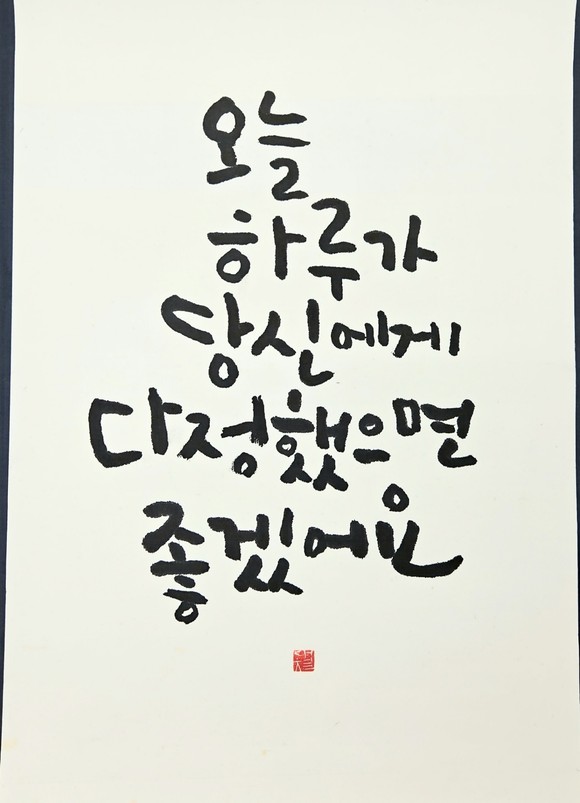 오늘
하루가
당신에게
다정했으면
좋겠어요